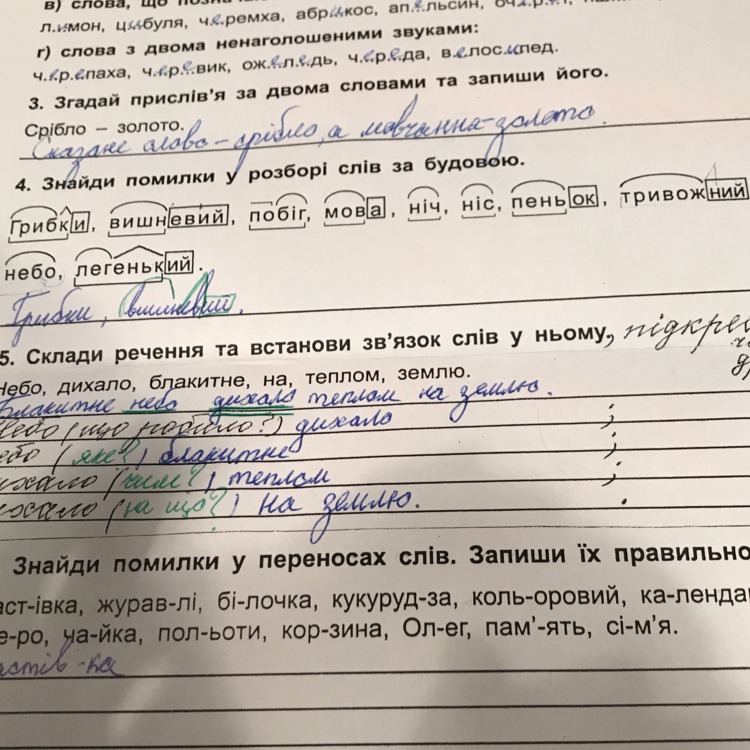 в) слова, що
л.и.мон, ц.и.буля, ч.е.ремха, абр.и.кос, ап.е.льсин,
г) слова з двома ненаголошеними звуками:
ч.е.р.е.паха, ч.е.р.е.вик, ож.е.л.е.дь, ч.е.р.е.да, в.е.лос.и.пед.
3. Згадай прислів'я за двома словами та запиши його.
Срібло – золото.
Сказане слово - срібло, а мовчання - золото.
4. Знайди помилки у розборі слів за будовою.
Грибки, вишневий, побіг, мова, ніч, ніс, пеньок, тривожний
небо, легенький.
Грибки, вишневий.
5. Склади речення та встанови зв'язок слів у ньому, підкре
Небо, дихало, блакитне, на, теплом, землю.
Блакитне небо дихало теплом на землю.
Небо (що робило?) дихало ;
ебо (яке?) блакитне ;
ихало (чим?) теплом ;
ихало (на що?) на землю.
Знайди помилки у переносах слів. Запиши їх правильно
аст-івка, журав-лі, бі-лочка, кукуруд-за, коль-оровий, ка-лендар
е-ро, ча-йка, пол-ьоти, кор-зина, Ол-ег, пам'-ять, сі-м'я.
астів-ка